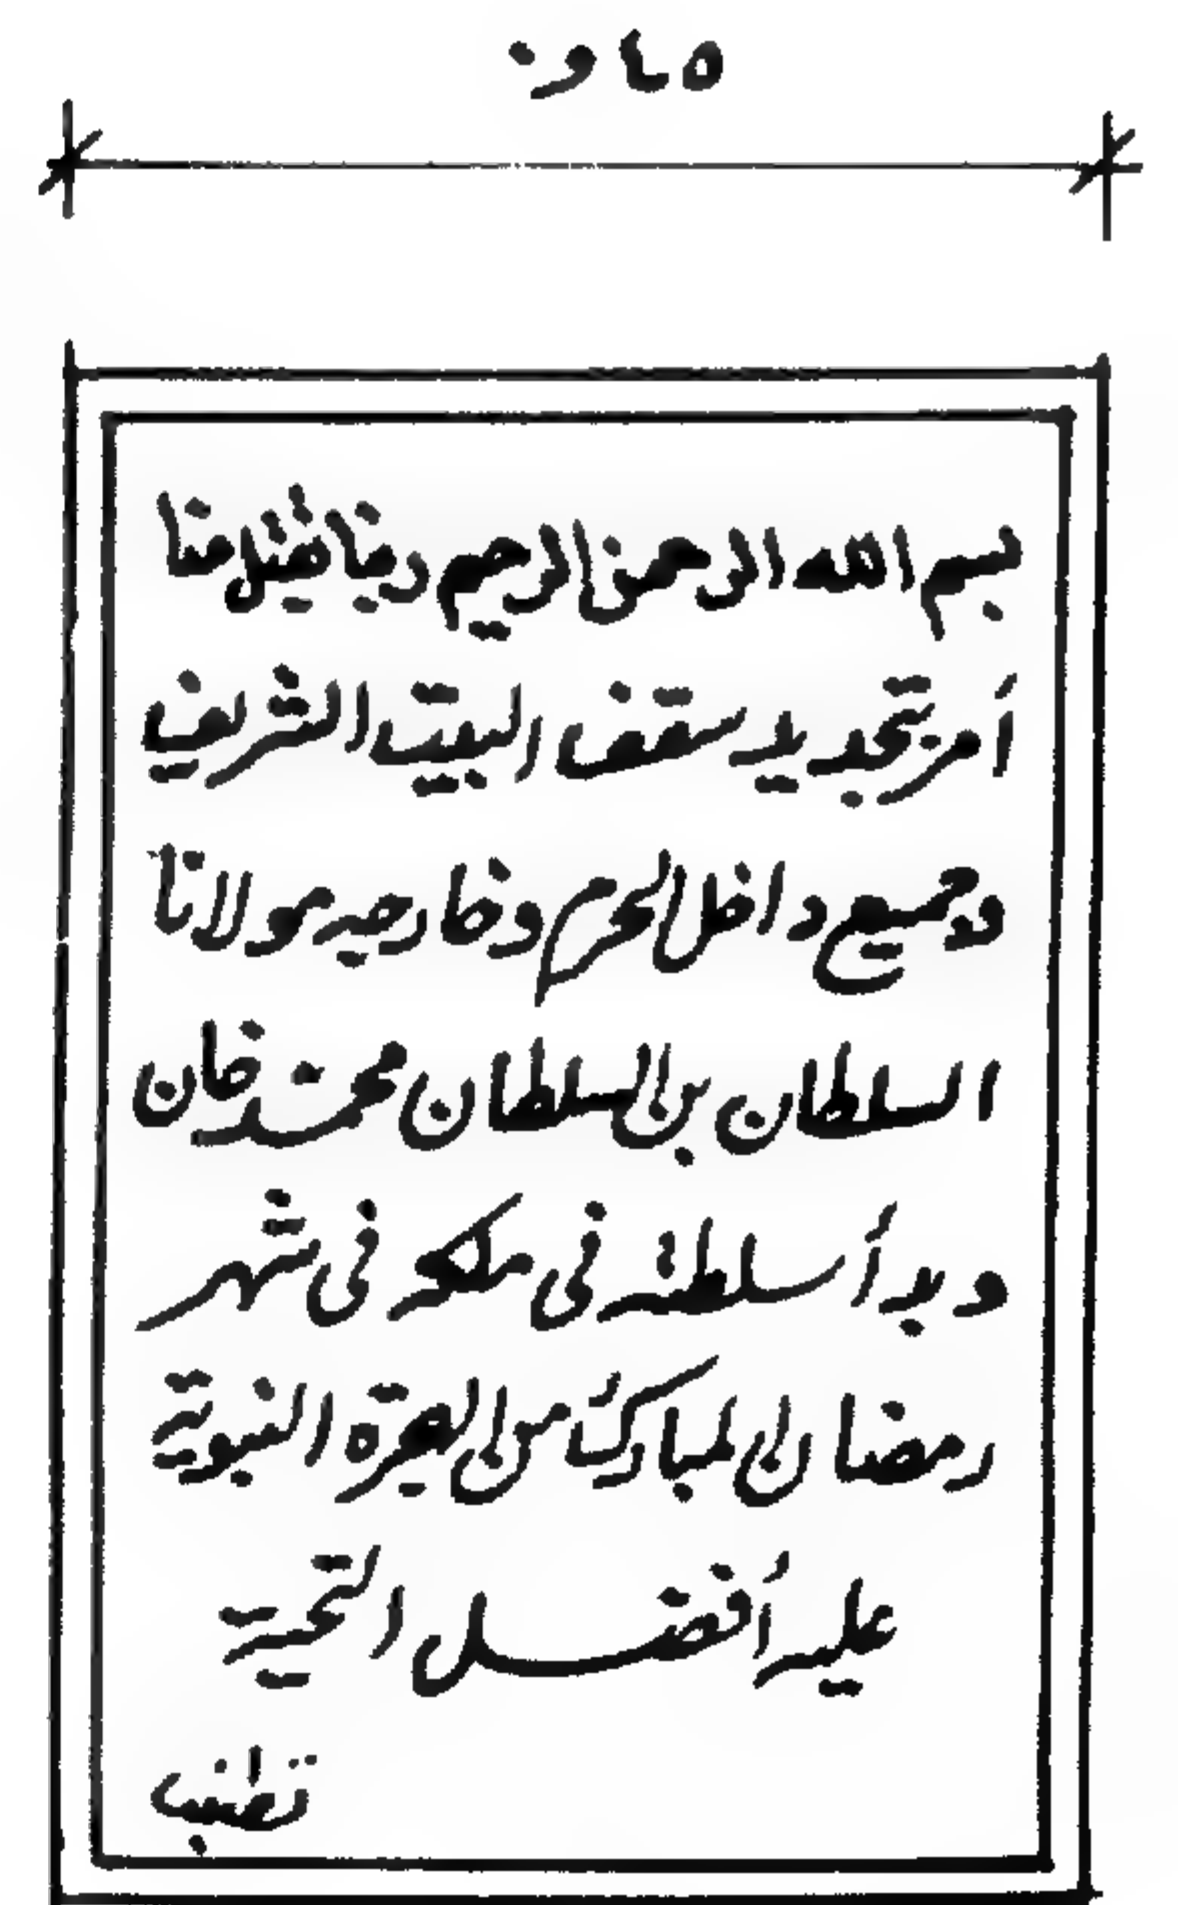 ٠و٤٥
بسم الله الرحمن الرحيم ربنا تقبل منا
أمر بتجديد سقف البيت الشريف
وجميع داخل الحرم وخارجه مولانا
السلطان بن السلطان محمد خان
وبدأ سلطنة في مكه في شهر
رمضان المبارك من الهجرة النبوية
عليه أفضل التحية